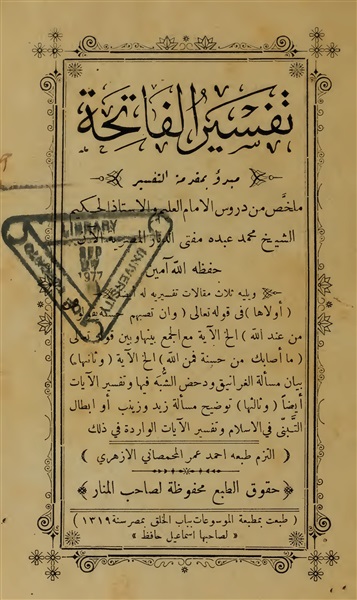 تفسير الفاتحة
مبدؤ بمقدمة التفسير
ملخّص من دروس الامام العليم والاستاذ الحكيم
الشيخ محمد عبده مفتي الديار المصرية
حفظه الله آمين
ويليه ثلاث مقالات تفسيرية له
( أولاها ) في قوله تعالى ( وان تصبهم
من عند الله ) الخ الآية مع الجمع بينها وبين قوله تعالى
( ما أصابك من حسنة فمن الله ) الخ الآية ( وثانيها )
بيان مسألة الغرانيق ودحض الشُّبَه فيها وتفسير الآيات
أيضاً ( وثالثها ) توضيح مسألة زيد وزينب أو ابطال
التَّبنّي في الاسلام وتفسير الآيات الواردة في ذلك
( التزم طبعه احمد عمر المحمصاني الازهري )
حقوق الطبع محفوظة لصاحب المنار
( طبعت بمطبعة الموسوعات بباب الخلق بمصر سنة ١٣١٩ )
« لصاحبها اسماعيل حافظ »
LIBRARY
SEP
1977
UNIVERSITY